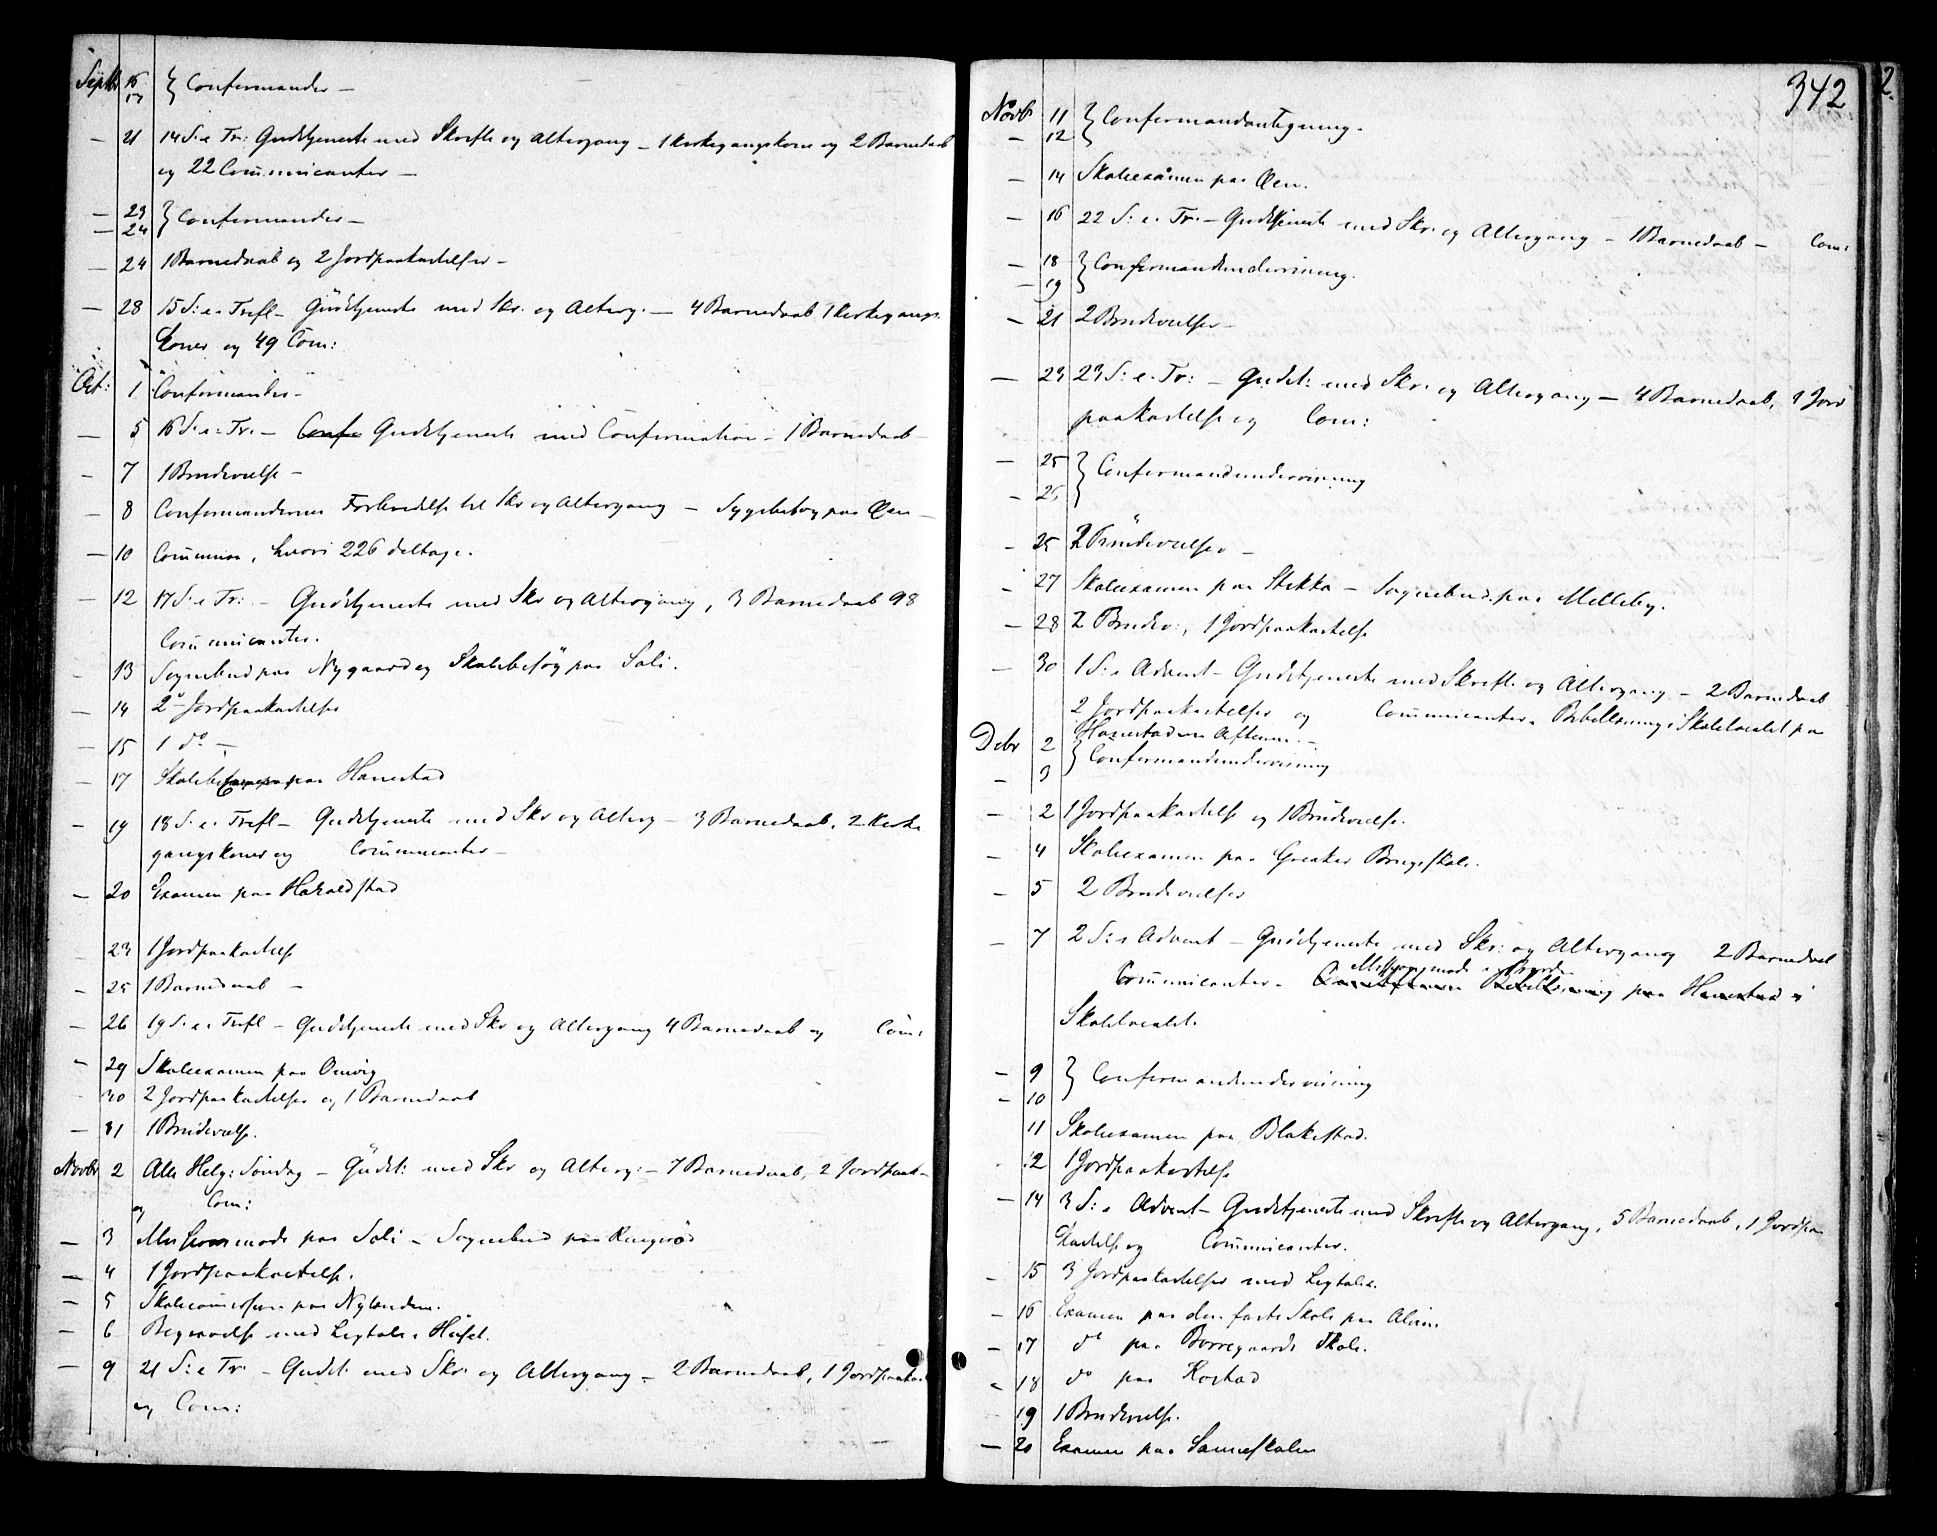 Septbr 16 } Confirmander –
17
– 21 14 S. e. Tr: Gudstjeneste med Skrifte og Altergang – 1 Kirkegangskone og 2 Barnedaab
og 22 Communicanter –
– 23 } Confirmander –
– 24
– 24 1 Barnedaab og 2 Jordpaakastelser –
– 28 15 S. e. Trefl – Gudstjeneste med Skr. og Alterg. – 4 Barnedaab 1 Kirkegangs
koner og 49 Com:
Oct: 1 Confirmander –
– 5 16 S. e. Tr. – Confir Gudstjeneste med Confirmation – 1 Barnedaab –
– 7 1 Brudevielse –
– 8 Confirmandernes Forberedelse til Skr og Altergang – Sygebesøg paa Øen –
– 10 Communion, hvori 226 deltage.
– 12 17 S. e. Tr: – Gudstjeneste med Skr og Altergang, 3 Barnedaab 98
Communicanter.
13 Sognebud paa Nygaard og Skolebesøg paa Soli.
– 14 2 Jordpaakastelser
– 15 1 do –
– 17 Skole paa Hanestad
– 19 18 S. e. Trefl – Gudstjeneste med Skr og Alterg – 3 Barnedaab, 2 Kirke
gangskoner og Communicanter –
– 20 Examen paa Haraldstad
23 1 Jordpaakastelse
– 25 1 Barnedaab –
– 26 19 S. e. Trefl – Gudstjeneste med Skr og Altergang 4 Barnedaab og Com:
– 29 Skoleexamen paa Omvig
30 2 Jordpaakastelser og 1 Barnedaab
– 31 1 Brudevielse.
Novbr 2 Alle Helg: Søndag – Gudst: med Skr og Alterg: – 7 Barnedaab, 2 Jordpaak–
og Com:
– 3 Missionsmøde paa Soli – Sognebud paa Ringerød
– 4 1 Jordpaakastelse.
– 5 paa Nylanden.
– 6 Begravelse med Ligtale i Huset.
– 9 21 S. e. Tr. – Gudst: med Skr. og Altergang – 2 Barnedaab, 1 Jordpaakast
og Com:
342
Novb 11 } Confirmandantegning.
– 12
– 14 Skoleexamen paa Øen.
– 16 22 S. e. Tr. – Gudstjeneste med Skr. og Altergang – 1 Barnedaab – Com:
– 18 } Confirmandundervisning.
– 19
– 21 2 Brudevielser –
– 23 23 S. e. Tr: – Gudst: med Skr. og Altergang – 4 Barnedaab, 1 Jord
paakastelse og Com:
– 25 } Confirmandundervisning
– 26
– 25 2 Brudevielser –
– 27 Skoleexamen paa Stikka – Sognebud paa Melleby.
– 28 2 Brudev:, 1 Jordpaakastelse
– 30 1 S. i Advent – Gudstjeneste med Skrifte og Altergang – 2 Barnedaab
2 Jordpaakastelser og Communicanter. Bibellæsning i Skolelocalet paa
Hanestad om Aftenen. –
Debr 2 } Confirmandundervisning
– 3
– 2 1 Jordpaakastelse og 1 Brudevielse.
– 4 Skoleexamen paa Greaker Brugsskole.
– 5 2 Brudevielser
– 7 2 S. i Advent – Gudstjeneste med Skr: og Altergang 2 Barnedaab
Missionsmøde i
Communicanter – Bibellæsning paa Hanestad i
Skolelocalet.
– 9 } Confirmandundervisning
– 10
11 Skoleexamen paa Blakestad.
12 1 Jordpaakastelse
– 14 3 S. i Advent – Gudstjeneste med Skrifte og Altergang, 5 Barnedaab, 1 Jordpaa
kastelse og Communicanter.
– 15 3 Jordpaakastelser med Ligtale.
– 16 Examen paa den faste Skole paa Alvim
– 17 do paa Borregaards Skole.
– 18 do paa Kostad
19 1 Brudevielse.
– 20 Examen paa Sanneskolen